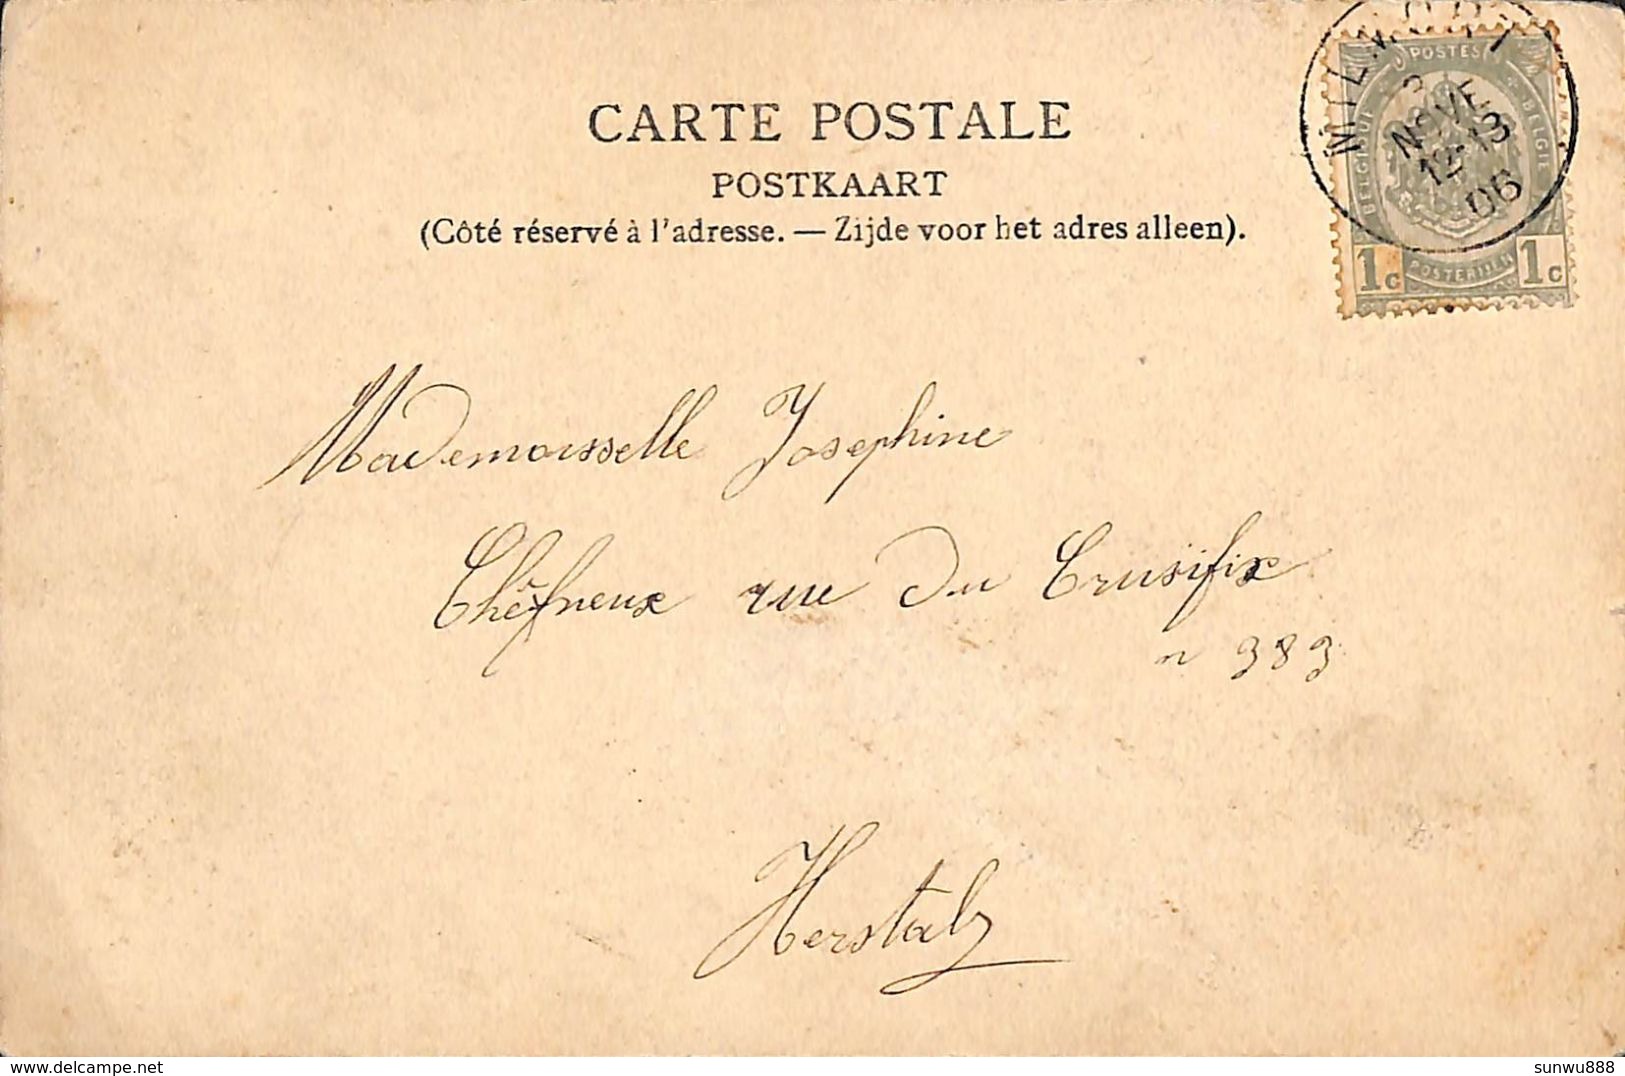 CARTE POSTALE
POSTKAART
(Côté réservé à l'adresse. — Zijde voor het adres alleen).
MILMORT
NOVE
12-13
06
POSTES
BELGIQUE
BELGIE
POSTERIJEN
1c 1c
Mademoisselle Josephine
Chêfneux rue du Crusifix
n 383
Herstal
delcampe.net
sunwu888